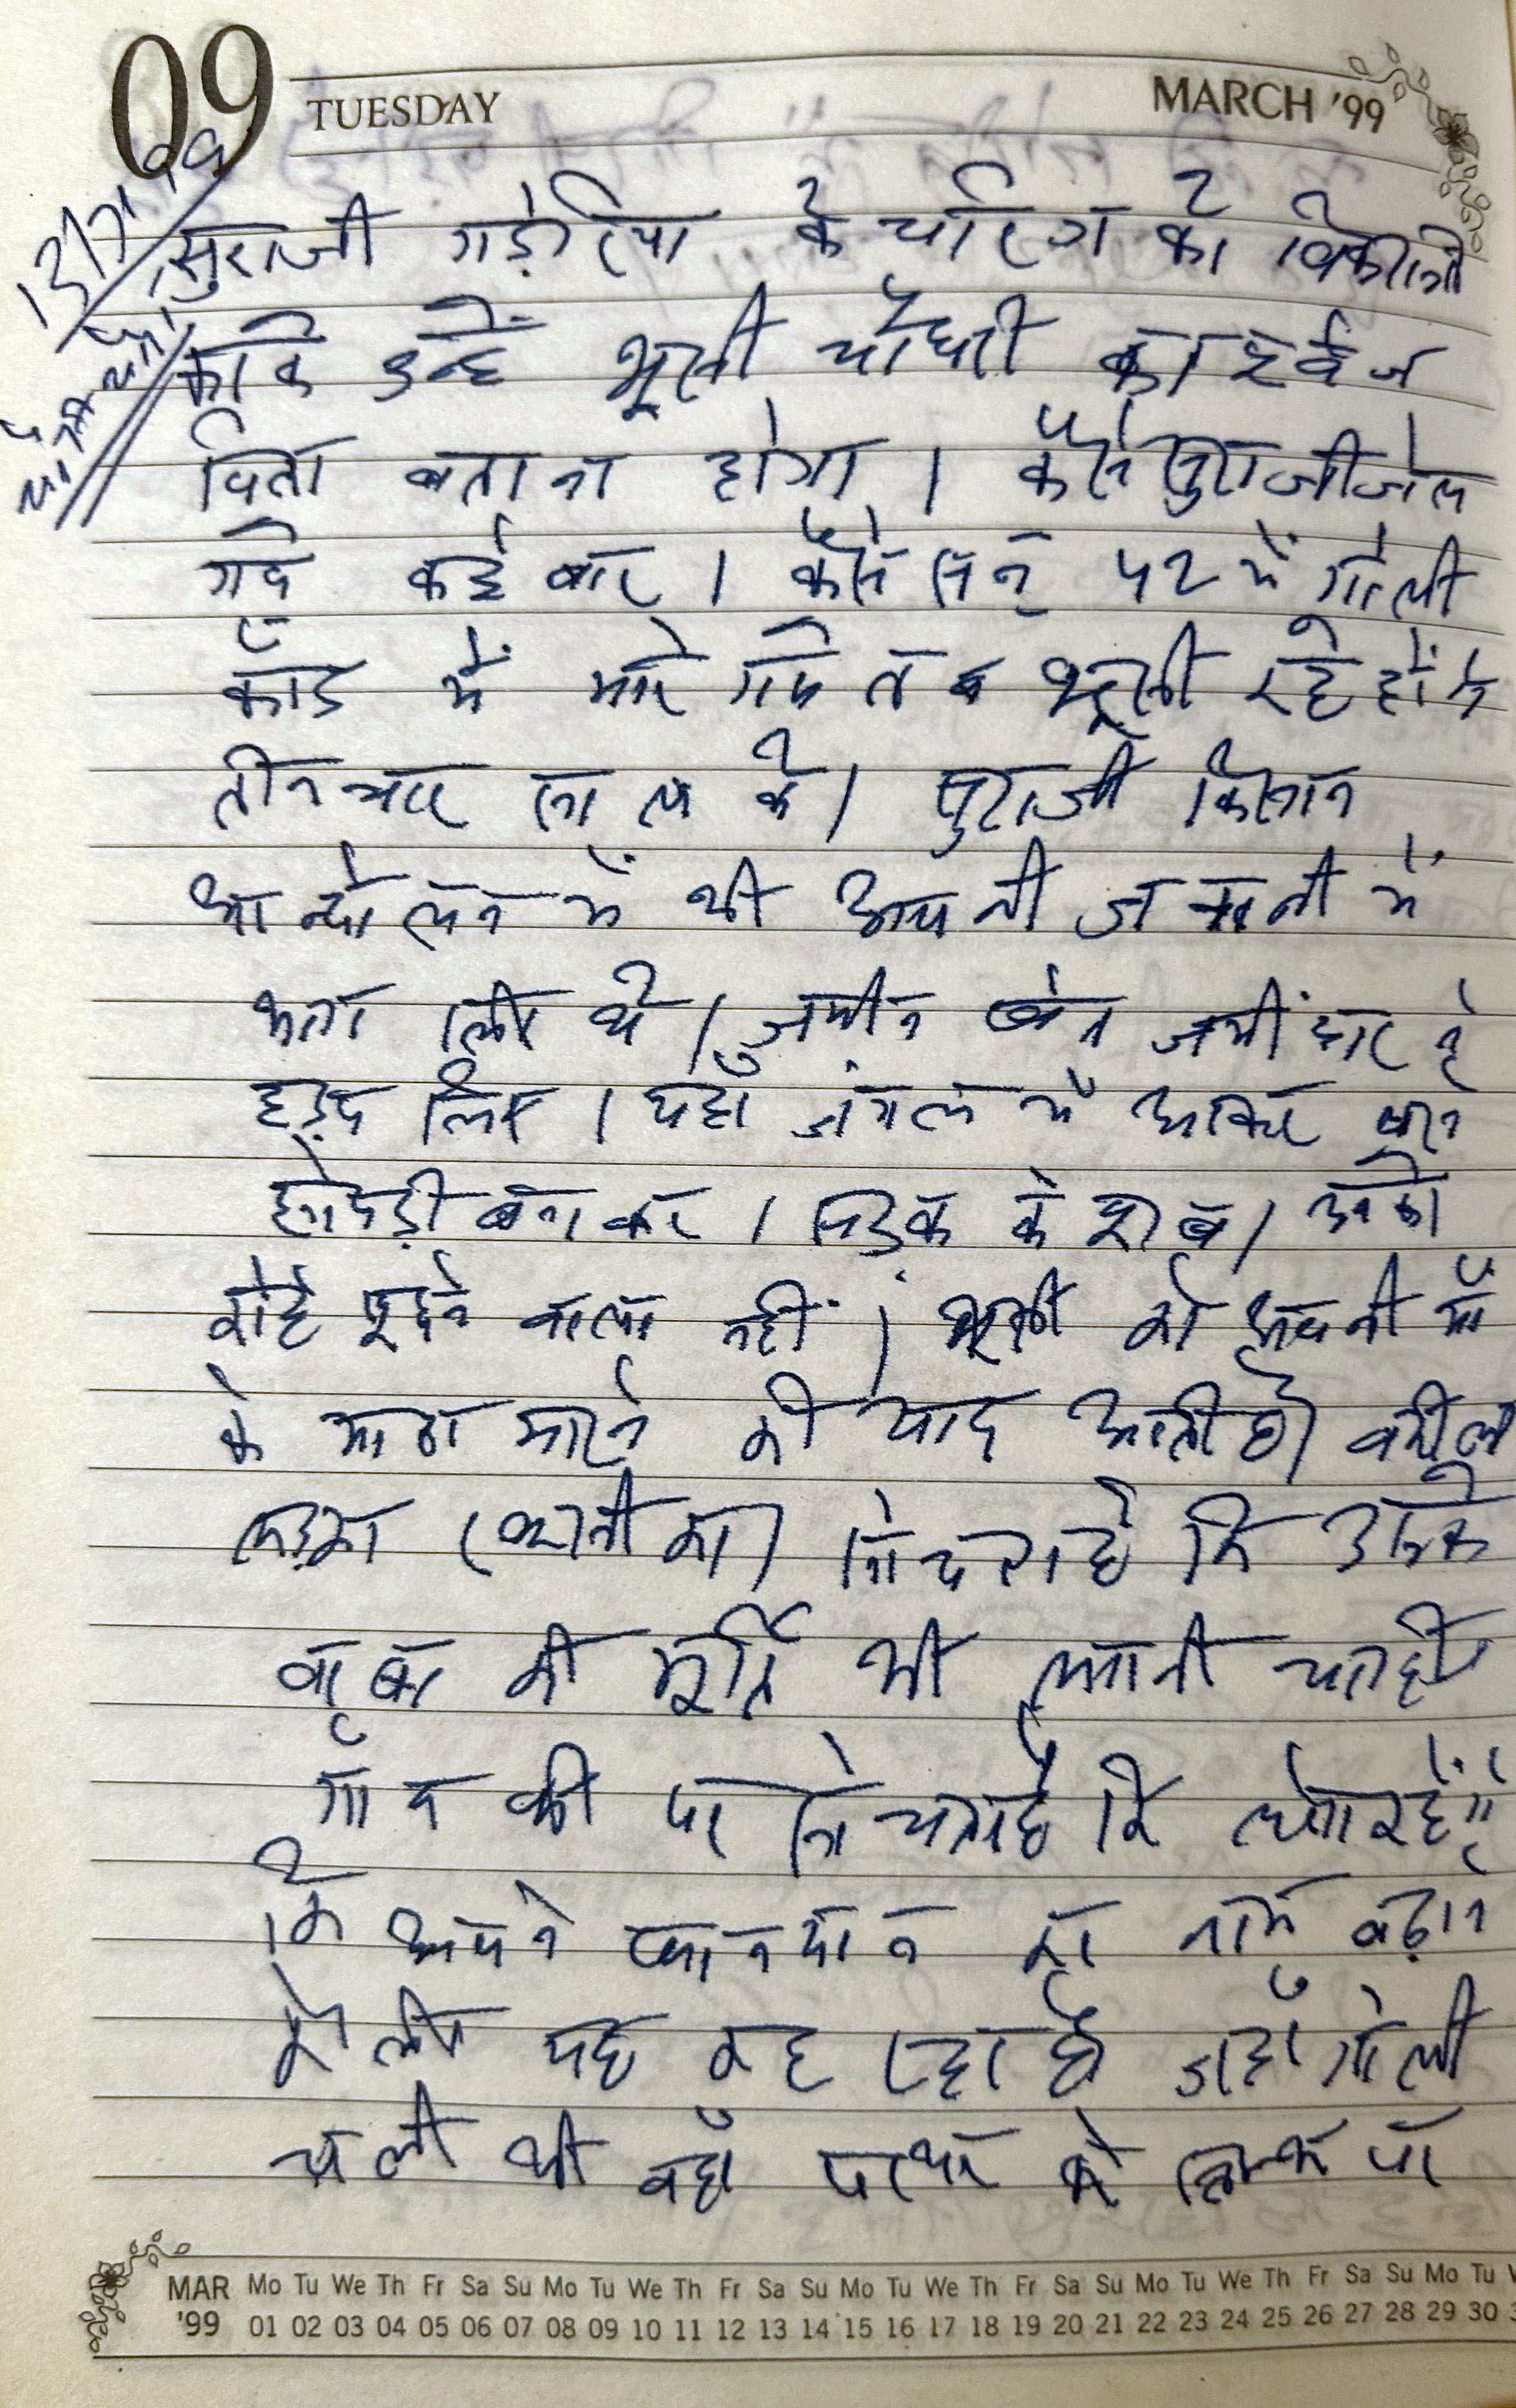 09 TUESDAY MARCH '99
13/7/99
सुराजी गड़ेरिया के चरित्र को विकसित
करके उन्हें भूसी चौधरी का
पिता बताना होगा । कैसे सुराजी जेल
गये कई बार । कैसे सन् ४२ में गोली
कांड में मारे गये तब भूसी रहे होंगे
तीन चार साल के । सुराजी किसान
आन्दोलन में भी अपनी जवानी में
भाग लिये थे । जमीन खेत जमींदार ने
हड़प लिया । यहाँ जंगल में आकर बसे
झोपड़ी बनाकर । सड़क के भूखे । उनको
कोई पूछने वाला नहीं । भूसी को अपनी माँ
के माठा मारने की याद आती है । वकील
लड़का (भूसी का) सोचता है कि उसके
बाबा की मूर्ति भी लगनी चाहिये
गाँव की पर सोचता है कि लोग कहेंगे
कि अपने खानदान का नाम बढ़ाने
के लिये यह कह रहा है जहाँ गोली
चली थी वहाँ पत्थर के स्तम्भ पर
MAR Mo Tu We Th Fr Sa Su Mo Tu We Th Fr Sa Su Mo Tu We Th Fr Sa Su Mo Tu We Th Fr Sa Su Mo Tu
'99 01 02 03 04 05 06 07 08 09 10 11 12 13 14 15 16 17 18 19 20 21 22 23 24 25 26 27 28 29 30